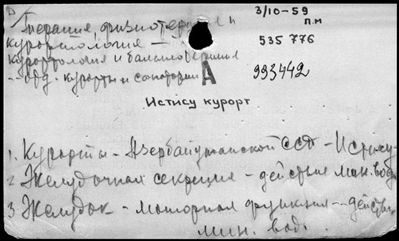 Терапия, физиотерапия и
курортология —
курортология и бальнеотерапия
— отд. курорты и санатории
3/10-59
п.м
535 776
А
993442
Истису курорт
1. Курорты - Азербайджанской ССР - Истису
2 Желудочная секреция - действие мин. вод
3 Желудок - моторная функция - действие
мин. вод.